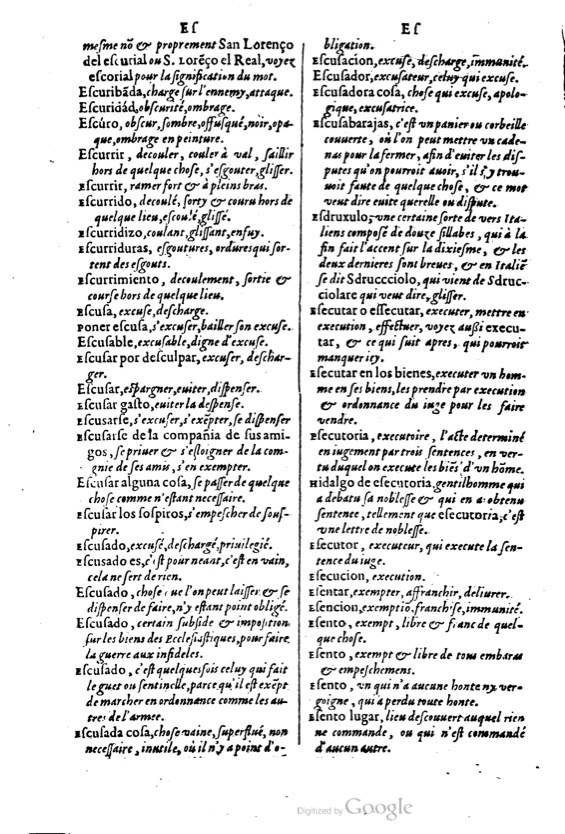 Es
mesme nõ & proprement San Lorenço
del escurial ou S. Lorẽço el Real, voyez
escorial pour la signification du mot.
Escuribãda, charge sur l'ennemy, attaque.
Escuridád, obscurité, ombrage.
Escúro, obscur, sombre, offusqué, noir, opa-
que, ombrage en peinture.
Escurrir, decouler, couler à val, saillir
hors de quelque chose, s'esgouter, glisser.
Escurrir, ramer fort & à pleins bras.
Escurrido, decoulé, sorty & couru hors de
quelque lieu, escoulé, glissé.
Escurridizo, coulant, glissant, enfuy.
Escurriduras, esgoutures, ordures qui sor-
tent des esgouts.
Escurrimiento, decoulement, sortie &
course hors de quelque lieu.
Escusa, excuse, descharge.
Poner escusa, s'excuser, bailler son excuse.
Escusable, excusable, digne d'excuse.
Escusar por desculpar, excuser, deschar-
ger.
Escusar, espargner, euiter, dispenser.
Escusar gasto, euiter la despense.
Escusarse, s'excuser, s'exẽpter, se dispenser
Escusarse de la compañia de sus ami-
gos, se priuer & s'esloigner de la com-
gnie de ses amis, s'en exempter.
Escusar alguna cosa, se passer de quelque
chose comme n'estant necessaire.
Escusar los sospiros, s'empescher de sous-
pirer.
Escusado, excusé, deschargé, priuilegié.
Escusado es, c'est pour neant, c'est en vain,
cela ne sert de rien.
Escusado, chose que l'on peut laisser & se
dispenser de faire, n'y estant point obligé.
Escusado, certain subside & imposition
sur les biens des Ecclesiastiques, pour faire
la guerre aux infideles.
Escusado, c'est quelquesfois celuy qui fait
le guet ou sentinelle, parce qu'il est exẽpt
de marcher en ordonnance comme les au-
tres de l'armee.
Escusada cosa, chose vaine, superfluë, non
necessaire, inutile, où il n'y a point d'o-
Es
bligation.
Escusacion, excuse, descharge, immunité.
Escusador, excusateur, celuy qui excuse.
Escusadora cosa, chose qui excuse, apolo-
gique, excusatrice.
Escusabarajas, c'est un panier ou corbeille
couuerte, où l'on peut mettre un cade-
nas pour la fermer, afin d'euiter les dis-
putes qu'on pourroit auoir, s'il s'y trou-
uoit faute de quelque chose, & ce mot
veut dire euite querelle ou dispute.
Esdruxulo, vne certaine sorte de vers Ita-
liens composé de douze sillabes, qui à la
fin fait l'accent sur la dixiesme, & les
deux dernieres sont breues, & en Italiẽ
se dit Sdruccciolo, qui vient de Sdruc-
ciolare qui veut dire, glisser.
Esecutar o essecutar, executer, mettre en
execution, effectuer, voyez aussi execu-
tar, & ce qui suit apres, qui pourroit
manquer icy.
Esecutar en los bienes, executer un hom-
me en ses biens, les prendre par execution
& ordonnance du iuge pour les faire
vendre.
Esecutoria, executoire, l'acte determiné
en iugement par trois sentences, en ver-
tu duquel on execute les biẽs d'vn hõme.
Hidalgo de esecutoria, gentilhomme qui
a debatu sa noblesse & qui en a obtenu
sentence, tellement que esecutoria, c'est
vne lettre de noblesse.
Esecutor, executeur, qui execute la sen-
tence du iuge.
Esecucion, execution.
Esentar, exempter, affranchir, deliurer.
Esencion, exemptiõ, franchise, immunité.
Esento, exempt, libre & franc de quel-
que chose.
Esento, exempt & libre de tous embaras
& empeschemens.
Esento, vn qui n'a aucune honte ny ver-
goigne, qui a perdu toute honte.
Esento lugar, lieu descouuert auquel rien
ne commande, ou qui n'est commandé
d'aucun autre.
Digitized by Google